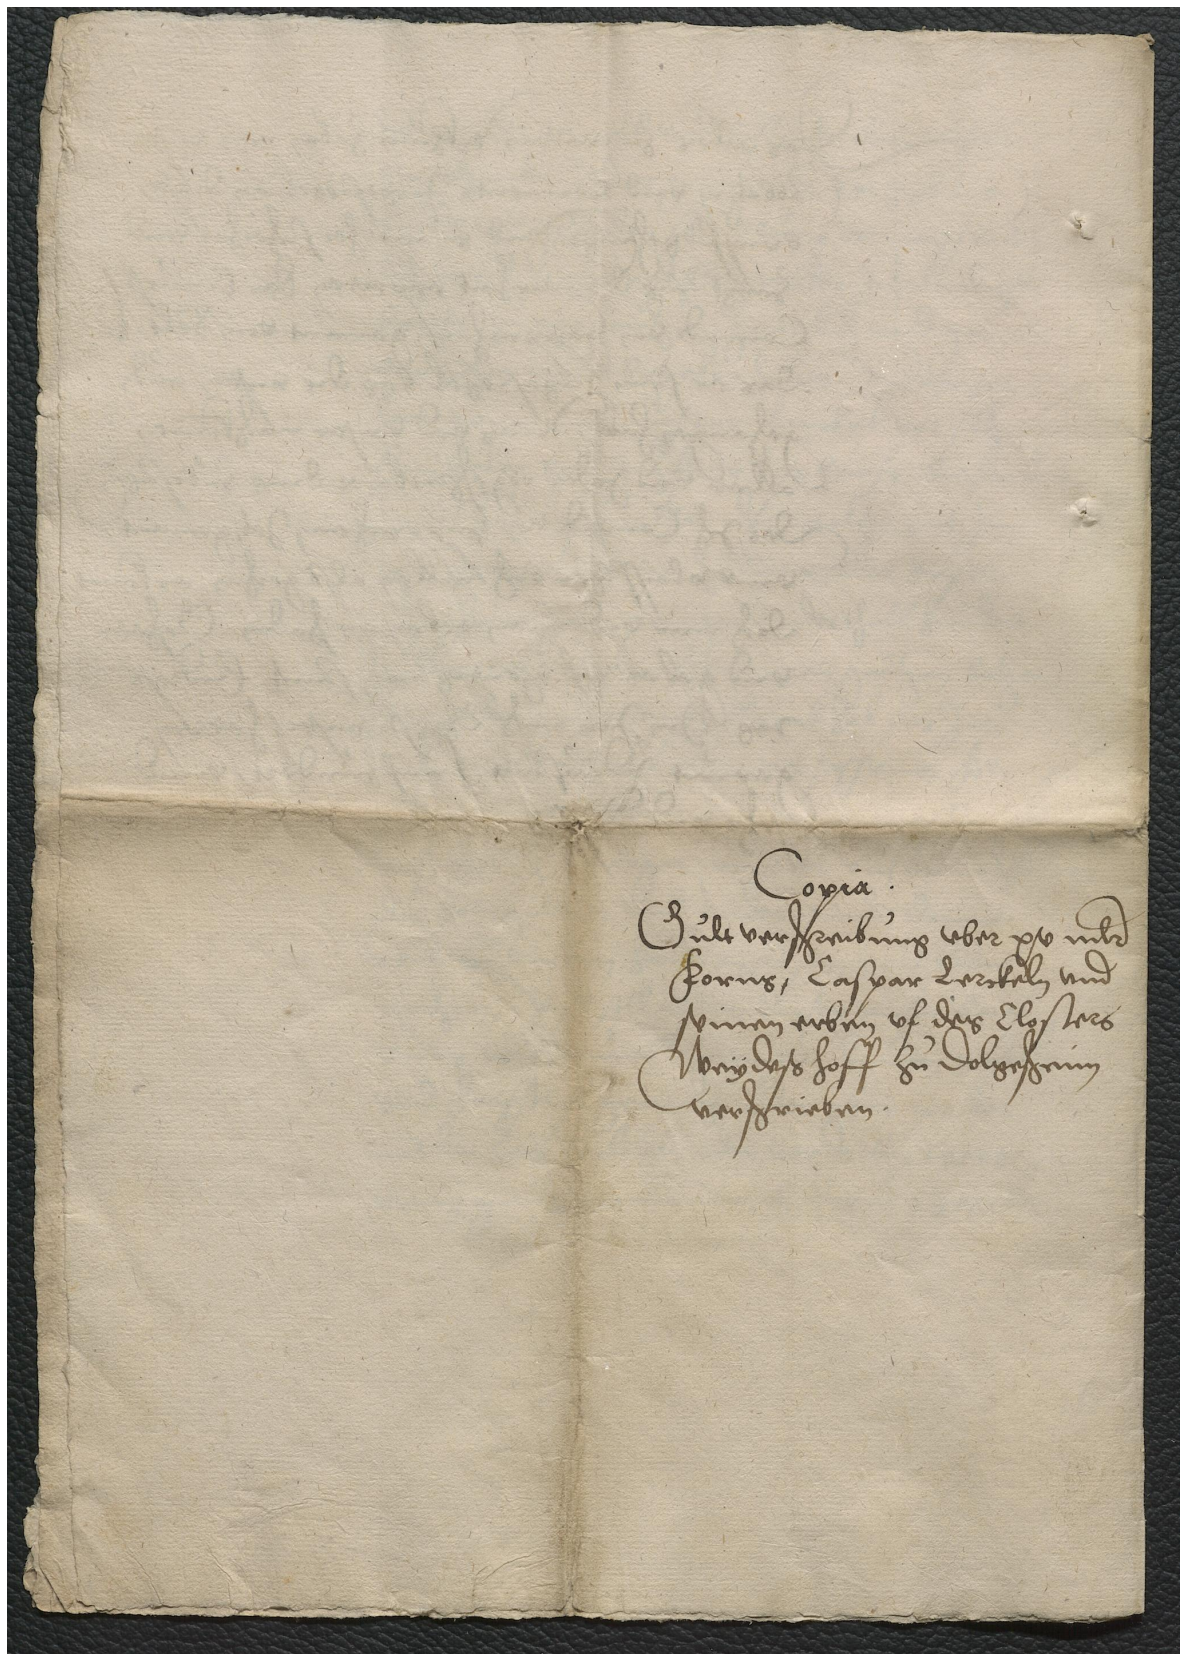 Copia.
Gult verschreibung vber xv mlr
Korns, Caspar Lerckeln vnd
seinen erben vf des Closters
Weydes hoff zu Dolgesheim
verschrieben.